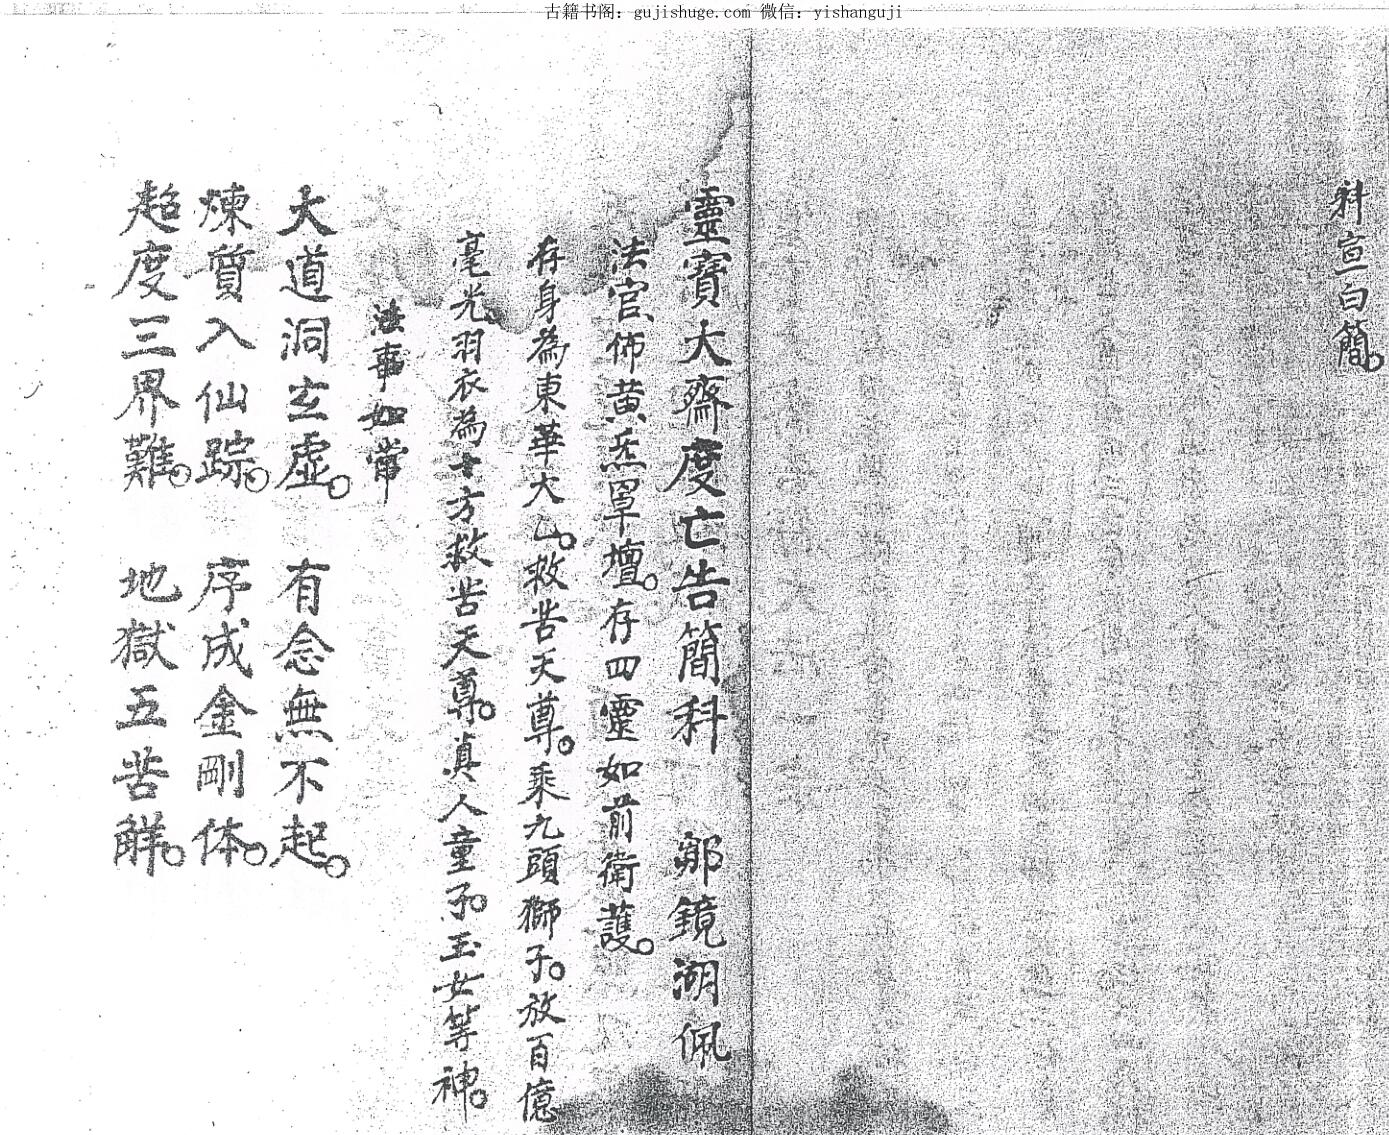 古籍书阁：gujishuge.com 微信：yishanguji
科宣白簡。
靈寶大齋度亡告簡科　鄒鏡湖佩
法官佈黄炁罩壇。存四靈如前衛護。
存身為東華大乙。救苦天尊。乘九頭獅子。放百億
毫光羽衣為十方救苦天尊。真人童子。玉女等神。
法事如常
大道洞玄虛。　有念無不起。
煉質入仙踪。　序成金剛体。
超度三界難。　地獄五苦解。